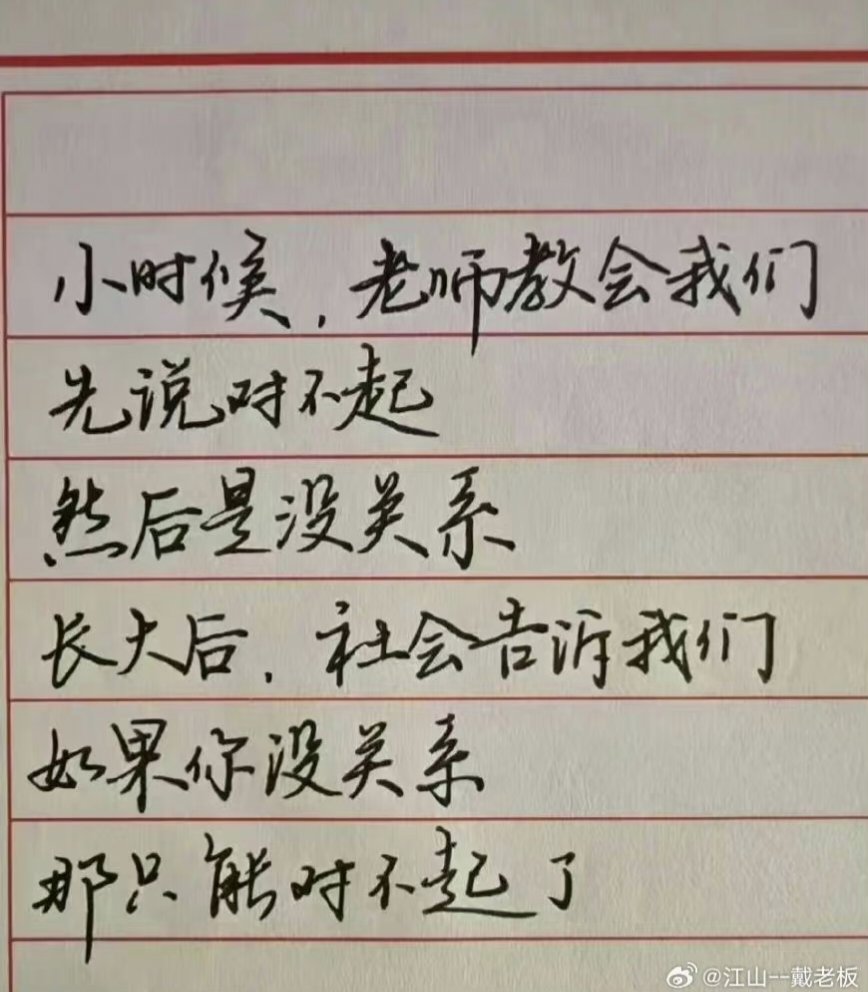 小时候，老师教会我们
先说对不起
然后是没关系
长大后，社会告诉我们
如果你没关系
那只能对不起了
@江山--戴老板